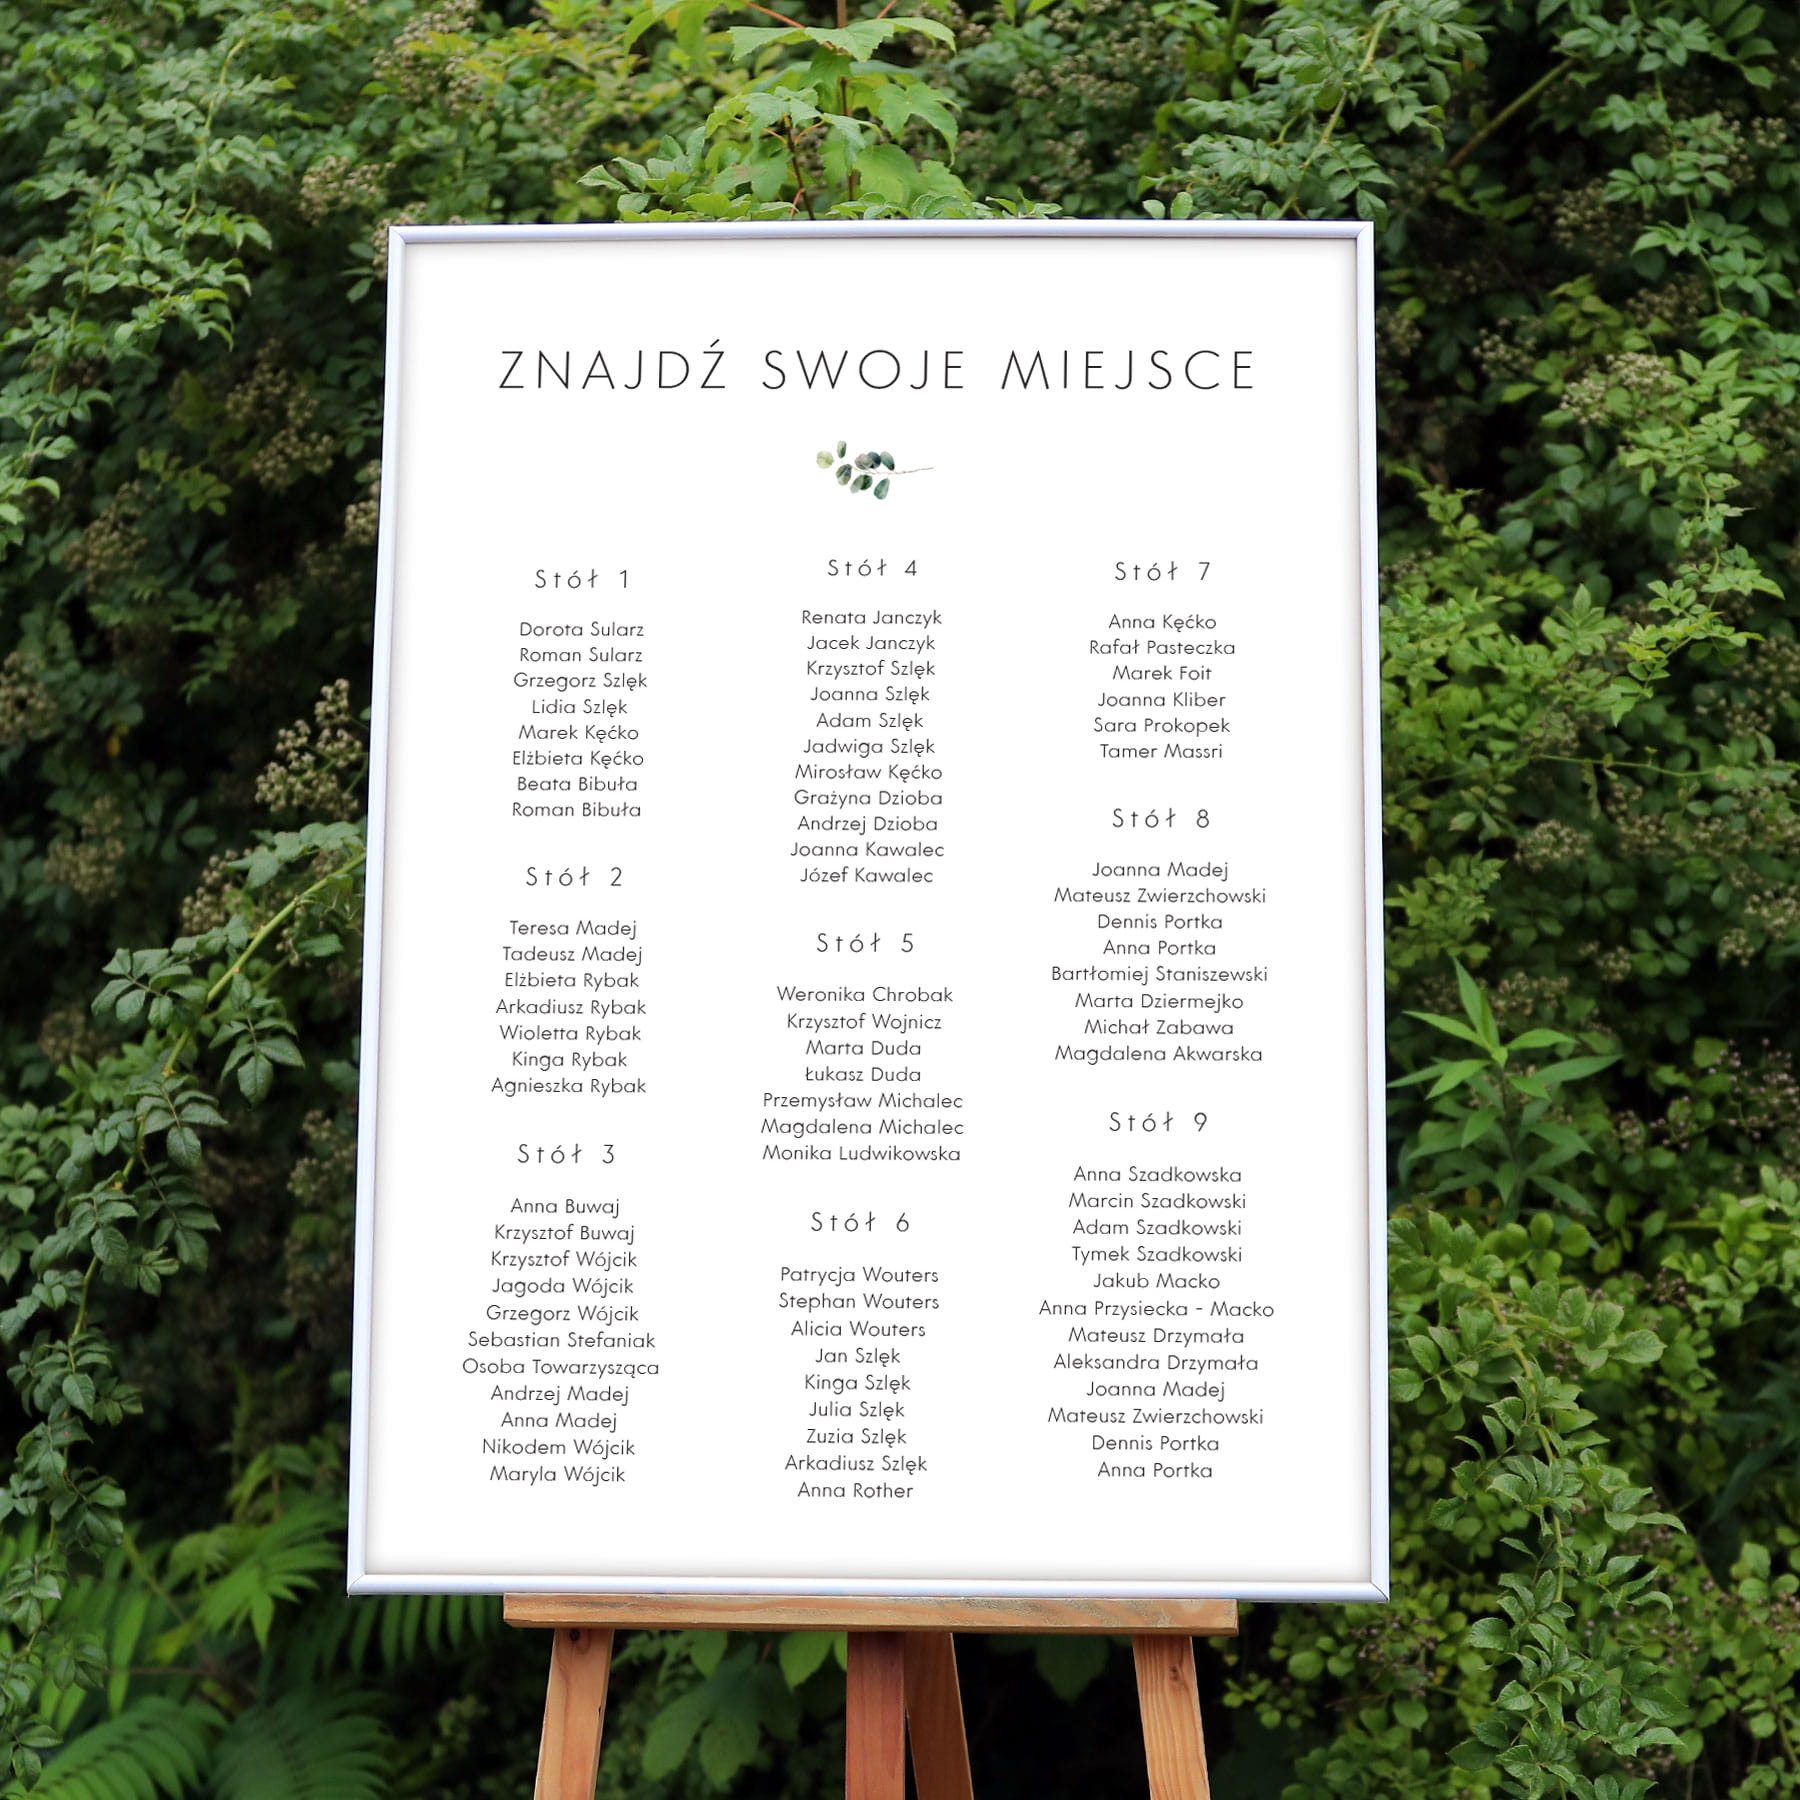 ZNAJDŹ SWOJE MIEJSCE
Stół 1
Dorota Sularz
Roman Sularz
Grzegorz Szlęk
Lidia Szlęk
Marek Kęćko
Elżbieta Kęćko
Beata Bibuła
Roman Bibuła
Stół 2
Teresa Madej
Tadeusz Madej
Elżbieta Rybak
Arkadiusz Rybak
Wioletta Rybak
Kinga Rybak
Agnieszka Rybak
Stół 3
Anna Buwaj
Krzysztof Buwaj
Krzysztof Wójcik
Jagoda Wójcik
Grzegorz Wójcik
Sebastian Stefaniak
Osoba Towarzysząca
Andrzej Madej
Anna Madej
Nikodem Wójcik
Maryla Wójcik
Stół 4
Renata Janczyk
Jacek Janczyk
Krzysztof Szlęk
Joanna Szlęk
Adam Szlęk
Jadwiga Szlęk
Mirosław Kęćko
Grażyna Dzioba
Andrzej Dzioba
Joanna Kawalec
Józef Kawalec
Stół 5
Weronika Chrobak
Krzysztof Wojnicz
Marta Duda
Łukasz Duda
Przemysław Michalec
Magdalena Michalec
Monika Ludwikowska
Stół 6
Patrycja Wouters
Stephan Wouters
Alicia Wouters
Jan Szlęk
Kinga Szlęk
Julia Szlęk
Zuzia Szlęk
Arkadiusz Szlęk
Anna Rother
Stół 7
Anna Kęćko
Rafał Pasteczka
Marek Foit
Joanna Kliber
Sara Prokopek
Tamer Massri
Stół 8
Joanna Madej
Mateusz Zwierzchowski
Dennis Portka
Anna Portka
Bartłomiej Staniszewski
Marta Dziermejko
Michał Zabawa
Magdalena Akwarska
Stół 9
Anna Szadkowska
Marcin Szadkowski
Adam Szadkowski
Tymek Szadkowski
Jakub Macko
Anna Przysiecka - Macko
Mateusz Drzymała
Aleksandra Drzymała
Joanna Madej
Mateusz Zwierzchowski
Dennis Portka
Anna Portka